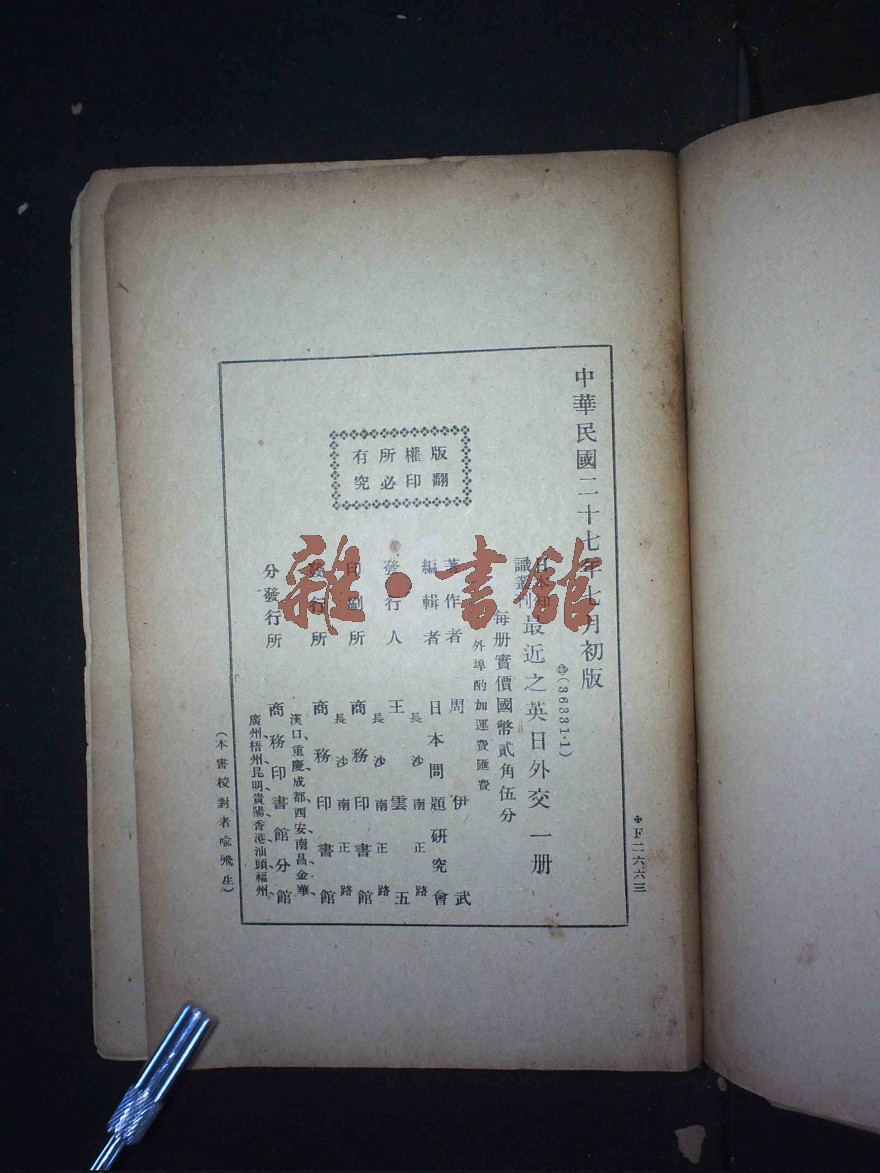 中華民國二十七年七月初版
⊕(36331·1)
日本知識叢刊 最近之英日外交 一册
每册實價國幣貳角伍分
外埠酌加運費匯費
著作者 周伊武
編輯者 日本問題研究會
發行人 王雲五
長沙南正路
印刷所 商務印書館
長沙南正路
發行所 商務印書館
長沙南正路
分發行所 商務印書館分館
漢口、重慶、成都、西安、南昌、金華、
廣州、梧州、昆明、貴陽、香港、汕頭、福州、
版權所有
翻印必究
(本書校對者喻飛生)
F二六六三
雜·書館